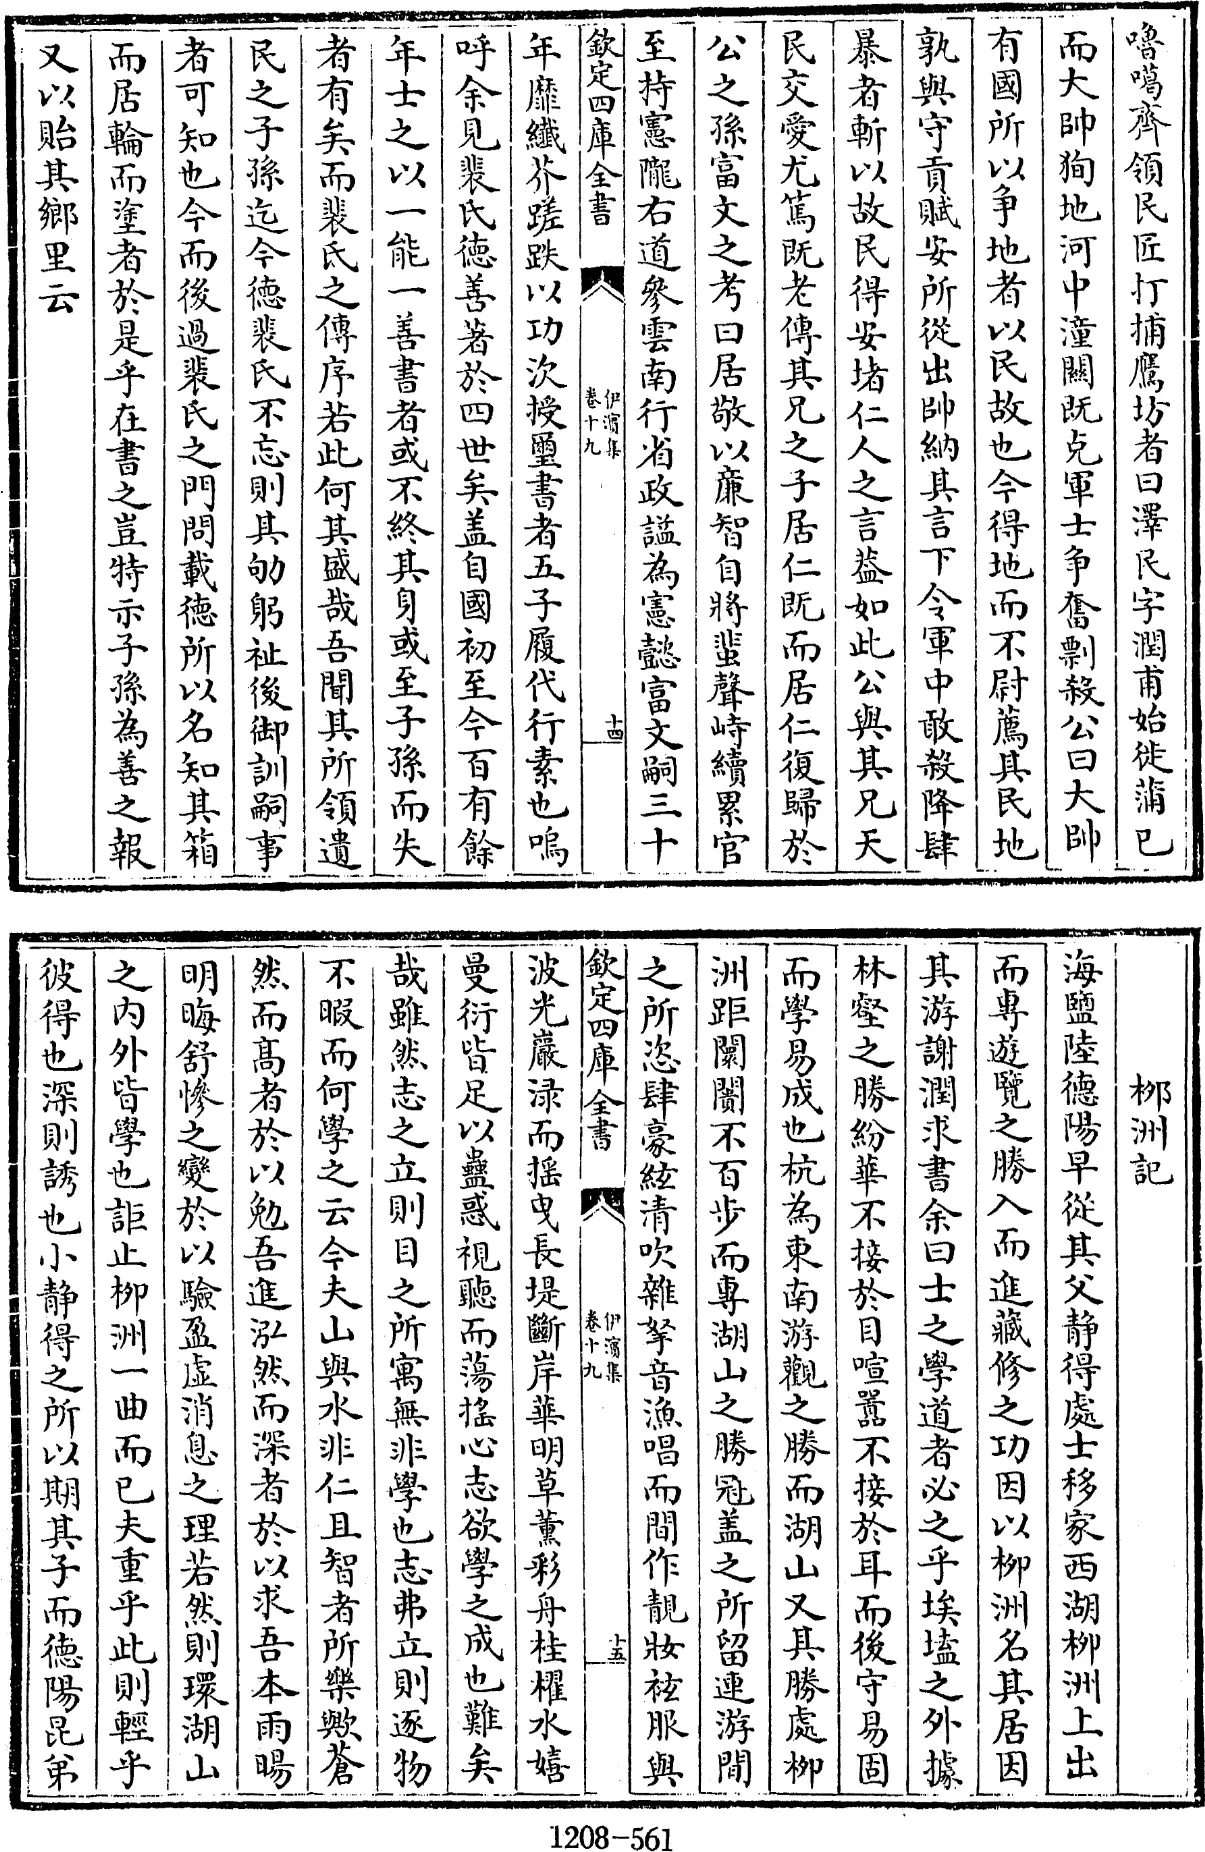 嚕噶齊領民匠打捕鷹坊者曰澤民字潤甫始徙蒲已
而大帥狥地河中潼關既克軍士争奮剽殺公曰大帥
有國所以争地者以民故也今得地而不尉薦其民地
孰與守貢賦安所從出帥納其言下令軍中敢殺降肆
暴者斬以故民得安堵仁人之言葢如此公與其兄天
民交愛尤篤既老傳其兄之子居仁既而居仁復歸於
公之孫富文之考曰居敬以亷智自將蜚聲峙績累官
至持憲隴右道參雲南行省政謚為憲懿富文嗣三十
欽定四庫全書
伊濱集
卷十九
十四
年靡纎芥蹉跌以功次授璽書者五子履代行素也嗚
呼余見裴氏徳善著於四世矣盖自國初至今百有餘
年士之以一能一善書者或不終其身或至子孫而失
者有矣而裴氏之傳序若此何其盛哉吾聞其所領遺
民之子孫迄今徳裴氏不忘則其劬躬祉後御訓嗣事
者可知也今而後過裴氏之門問載徳所以名知其箱
而居輪而塗者於是乎在書之豈特示子孫為善之報
又以貽其鄉里云
栁洲記
海鹽陸徳陽早從其父静得處士移家西湖栁洲上出
而專遊覽之勝入而進藏修之功因以栁洲名其居因
其游謝潤求書余曰士之學道者必之乎埃壒之外據
林壑之勝紛華不接於目喧嚚不接於耳而後守易固
而學易成也杭為東南游觀之勝而湖山又其勝處栁
洲距闤闠不百步而專湖山之勝冠盖之所留連游閒
之所恣肆豪絃清吹雜拏音漁唱而間作靚妝袨服與
欽定四庫全書
伊濱集
卷十九
十五
波光巖渌而摇曳長堤斷岸華明草薰彩舟桂櫂水嬉
曼衍皆足以蠱惑視聽而蕩搖心志欲學之成也難矣
哉雖然志之立則目之所寓無非學也志弗立則逐物
不暇而何學之云今夫山與水非仁且智者所樂歟蒼
然而髙者於以勉吾進泓然而深者於以求吾本雨暘
明晦舒慘之變於以驗盈虚消息之理若然則環湖山
之内外皆學也詎止栁洲一曲而已夫重乎此則輕乎
彼得也深則誘也小静得之所以期其子而徳陽昆弟
1208-561